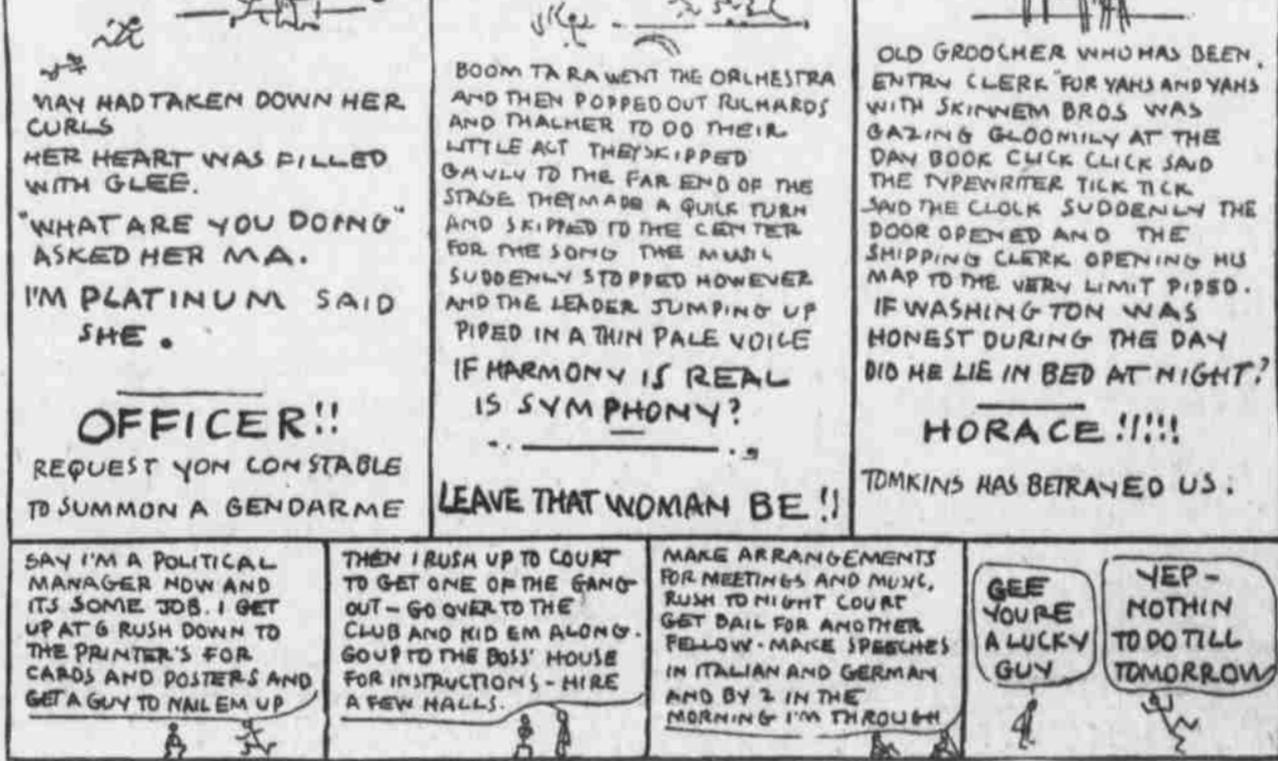 MAY HAD TAKEN DOWN HER
CURLS
HER HEART WAS FILLED
WITH GLEE.
"WHAT ARE YOU DOING"
ASKED HER MA.
I'M PLATINUM SAID
SHE.
OFFICER!!
REQUEST YON CONSTABLE
TO SUMMON A GENDARME
BOOM TA RA WENT THE ORCHESTRA
AND THEN POPPED OUT RICHARDS
AND THALMER TO DO THEIR
LITTLE ACT THEY SKIPPED
GAYLY TO THE FAR END OF THE
STAGE THEY MADE A QUICK TURN
AND SKIPPED TO THE CENTER
FOR THE SONG THE MUSIC
SUDDENLY STOPPED HOWEVER
AND THE LEADER JUMPING UP
PIPED IN A THIN PALE VOICE
IF HARMONY IS REAL
IS SYMPHONY?
LEAVE THAT WOMAN BE!!
OLD GROOCHER WHO HAS BEEN.
ENTRY CLERK FOR YAHS AND YAHS
WITH SKINNEM BROS WAS
GAZING GLOOMILY AT THE
DAY BOOK CLICK CLICK SAID
THE TYPEWRITER TICK TICK
SAID THE CLOCK SUDDENLY THE
DOOR OPENED AND THE
SHIPPING CLERK OPENING HIS
MAP TO THE VERY LIMIT PIPED.
IF WASHINGTON WAS
HONEST DURING THE DAY
DID HE LIE IN BED AT NIGHT?
HORACE!!!!!
TOMKINS HAS BETRAYED US.
SAY I'M A POLITICAL
MANAGER NOW AND
ITS SOME JOB. I GET
UP AT 6 RUSH DOWN TO
THE PRINTER'S FOR
CARDS AND POSTERS AND
GET A GUY TO NAIL EM UP
THEN I RUSH UP TO COURT
TO GET ONE OF THE GANG
OUT - GO OVER TO THE
CLUB AND KID EM ALONG.
GO UP TO THE BOSS' HOUSE
FOR INSTRUCTIONS - HIRE
A FEW HALLS.
MAKE ARRANGEMENTS
FOR MEETINGS AND MUSIC.
RUSH TO NIGHT COURT
GET BAIL FOR ANOTHER
FELLOW - MAKE SPEECHES
IN ITALIAN AND GERMAN
AND BY 2 IN THE
MORNING I'M THROUGH
GEE
YOURE
A LUCKY
GUY
YEP -
NOTHIN
TO DO TILL
TOMORROW